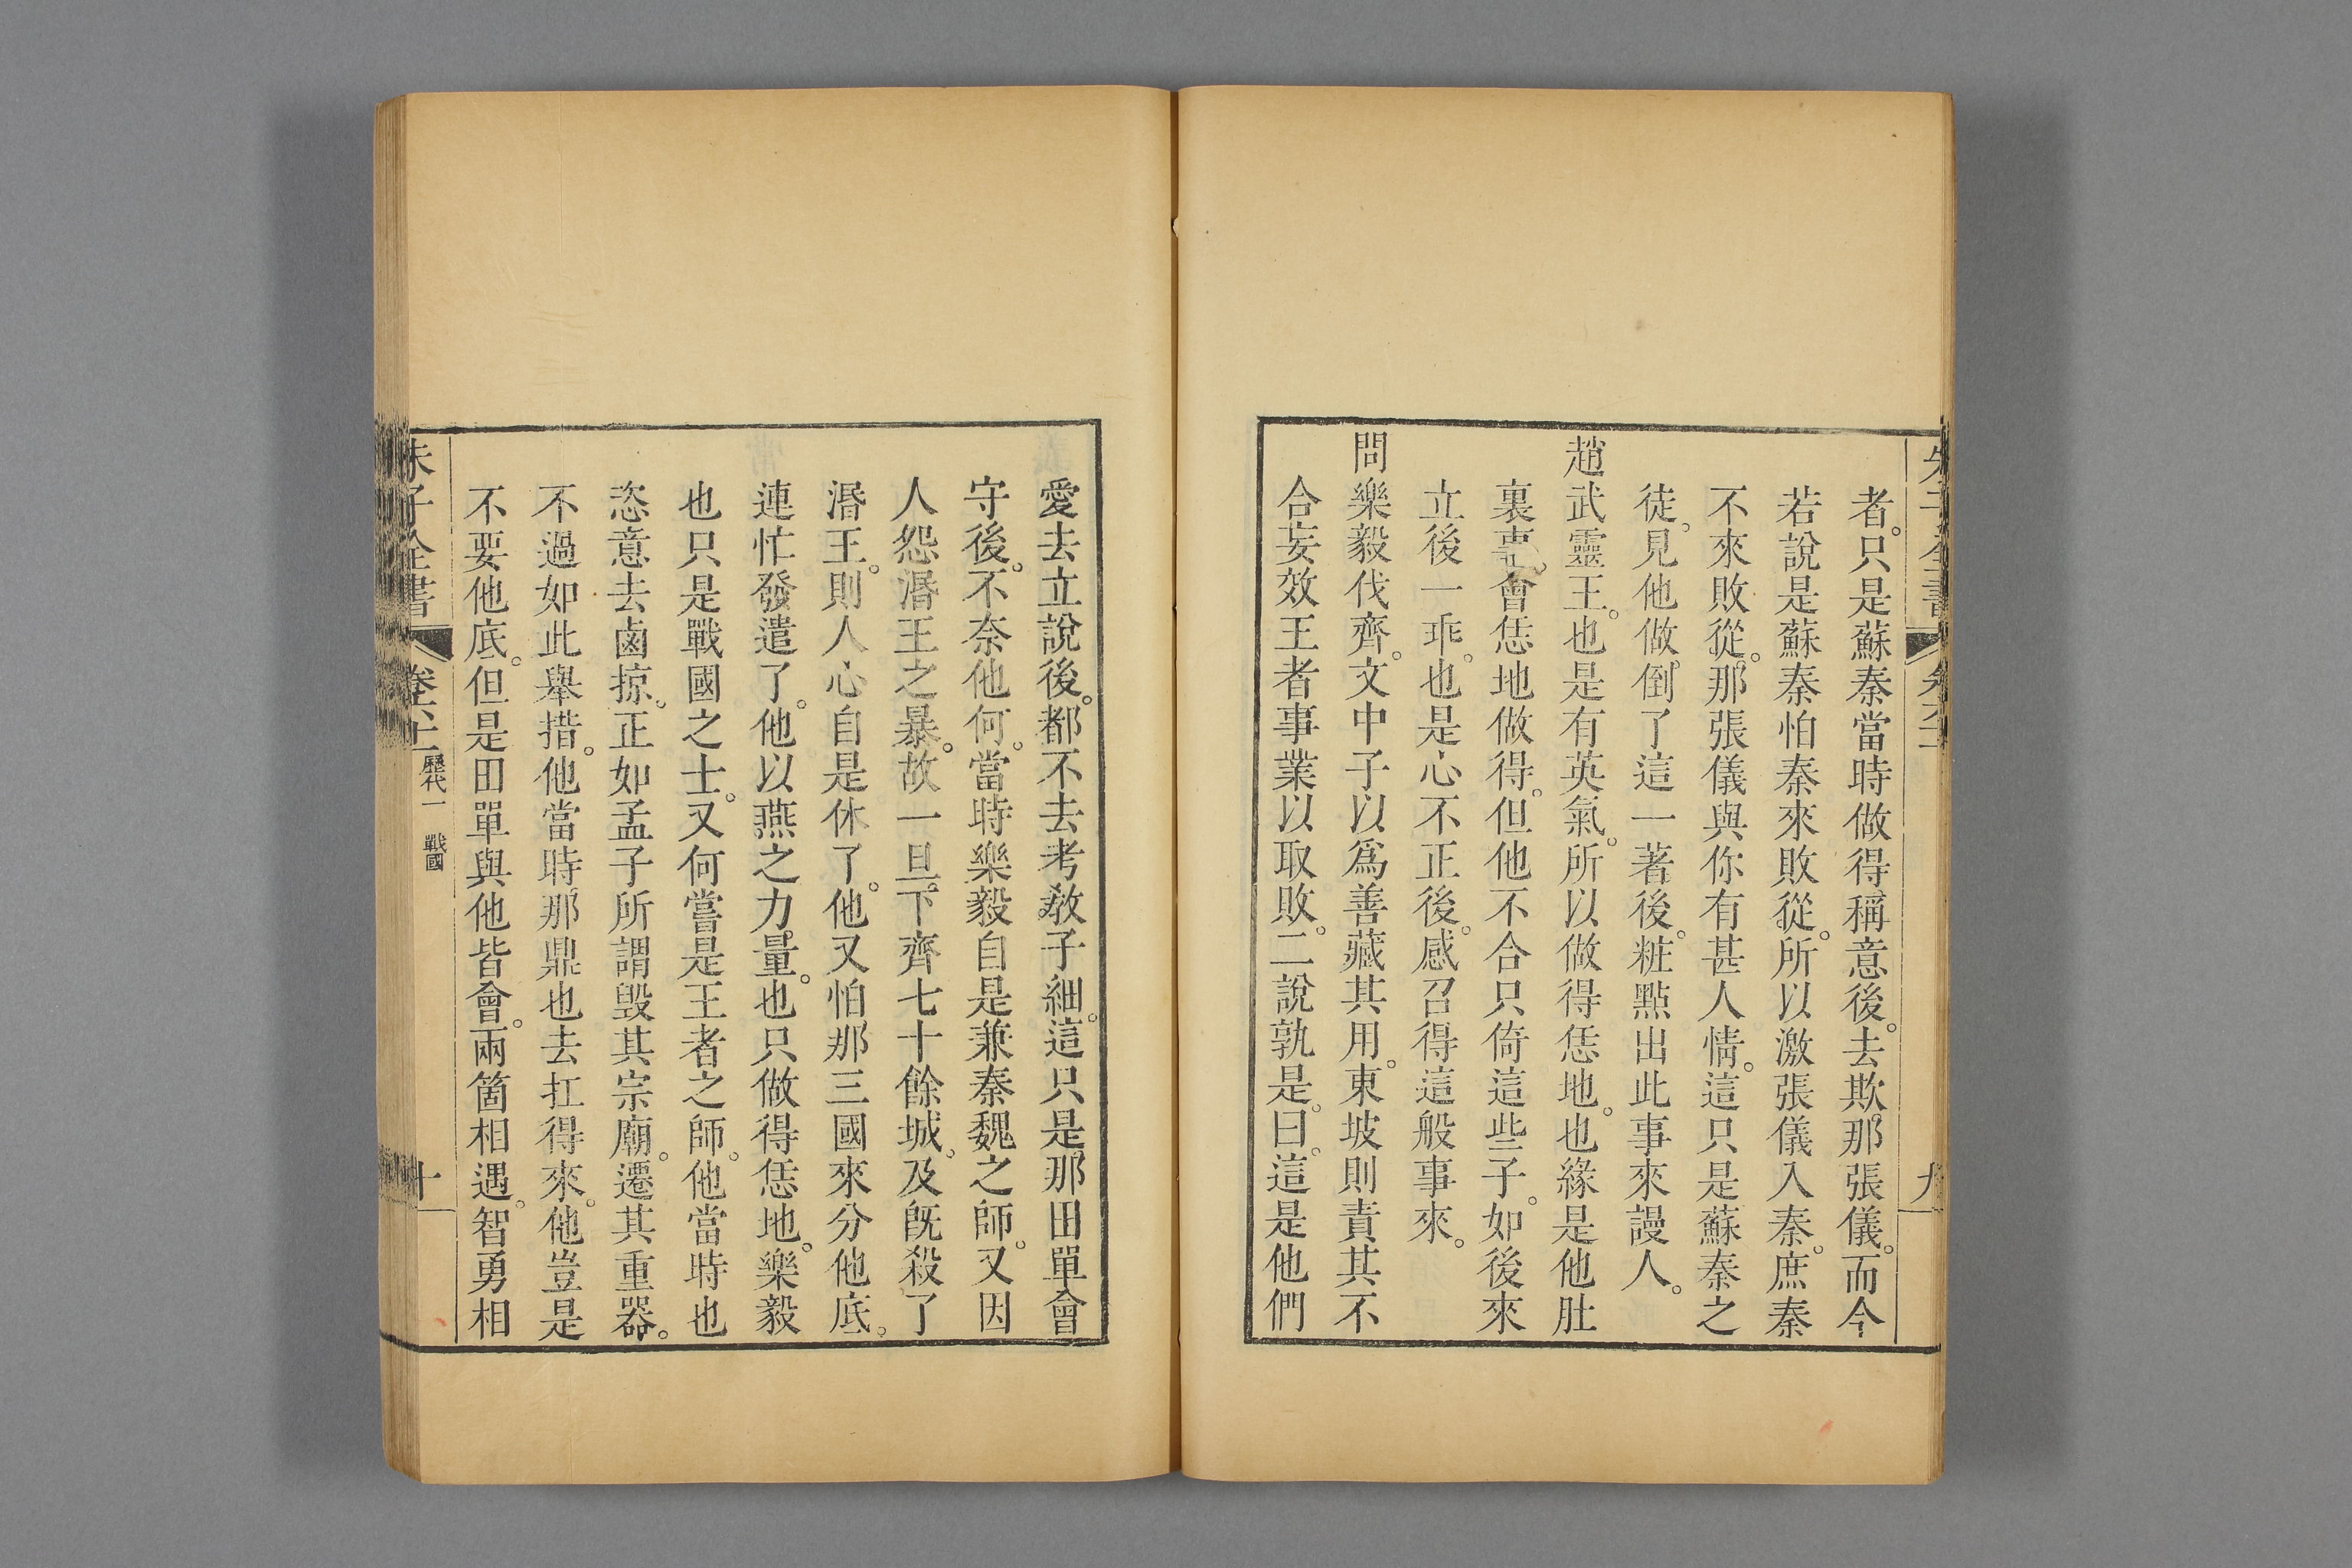 者。只是蘇秦當時做得稱意後。去欺那張儀。而今
若說是蘇秦怕秦來敗從。所以激張儀入秦。庶秦
不來敗從。那張儀與你有甚人情。這只是蘇秦之
徒。見他做倒了這一著後。粧點出此事來謾人。
趙武靈王。也是有英氣。所以做得恁地。也緣是他肚
裏事。會恁地做得。但他不合只倚這些子。如後來
立後一乖。也是心不正後。感召得這般事來。
問樂毅伐齊。文中子以爲善藏其用。東坡則責其不
合妄效王者事業以取敗。二說孰是。曰。這是他們
愛去立說後。都不去考敎子細。這只是那田單會
守後。不奈他何。當時樂毅自是兼秦魏之師。又因
人怨湣王之暴。故一旦下齊七十餘城。及旣殺了
湣王。則人心自是休了。他又怕那三國來分他底。
連忙發遣了。他以燕之力量。也只做得恁地。樂毅
也只是戰國之士。又何嘗是王者之師。他當時也
恣意去鹵掠。正如孟子所謂毀其宗廟。遷其重器。
不過如此舉措。他當時那鼎也去扛得來。他豈是
不要他底。但是田單與他皆會。兩箇相遇。智勇相
朱子全書
歷代一 戰國
十